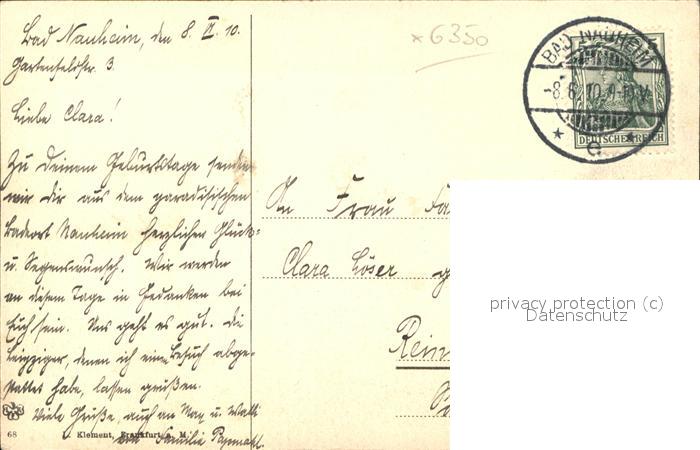 Bad Nauheim, den 8. VI. 10.
Gartenfeldstr. 3.
Liebe Clara!
Zu Deinem Geburtstage senden
wir Dir aus dem paradisischen
Badeort Nauheim herzlichen Glück-
u. Segenswunsch. Wir werden
an diesem Tage in Gedanken bei
Euch sein. Uns geht es gut. Die
Leipziger, denen ich einen Besuch abge-
stattet habe, lassen grüßen.
Viele Grüße, auch an Max u. Walli
von Familie
68 Klement, Frankfurt a. M.
*6350
BAD NAUHEIM
-8.6.10.9-10V.
* c *
DEUTSCHES REICH
An Frau
Clara Löser
Rein
privacy protection (c)
Datenschutz